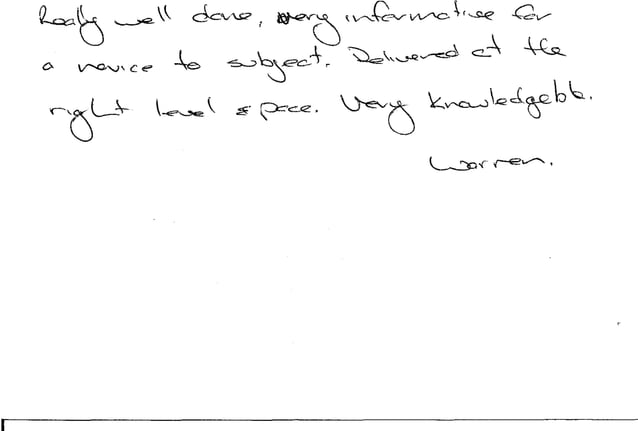 Really well done, very informative for
a novice to subject. Delivered at the
right level & pace. Very knowledgeble.
Warren.